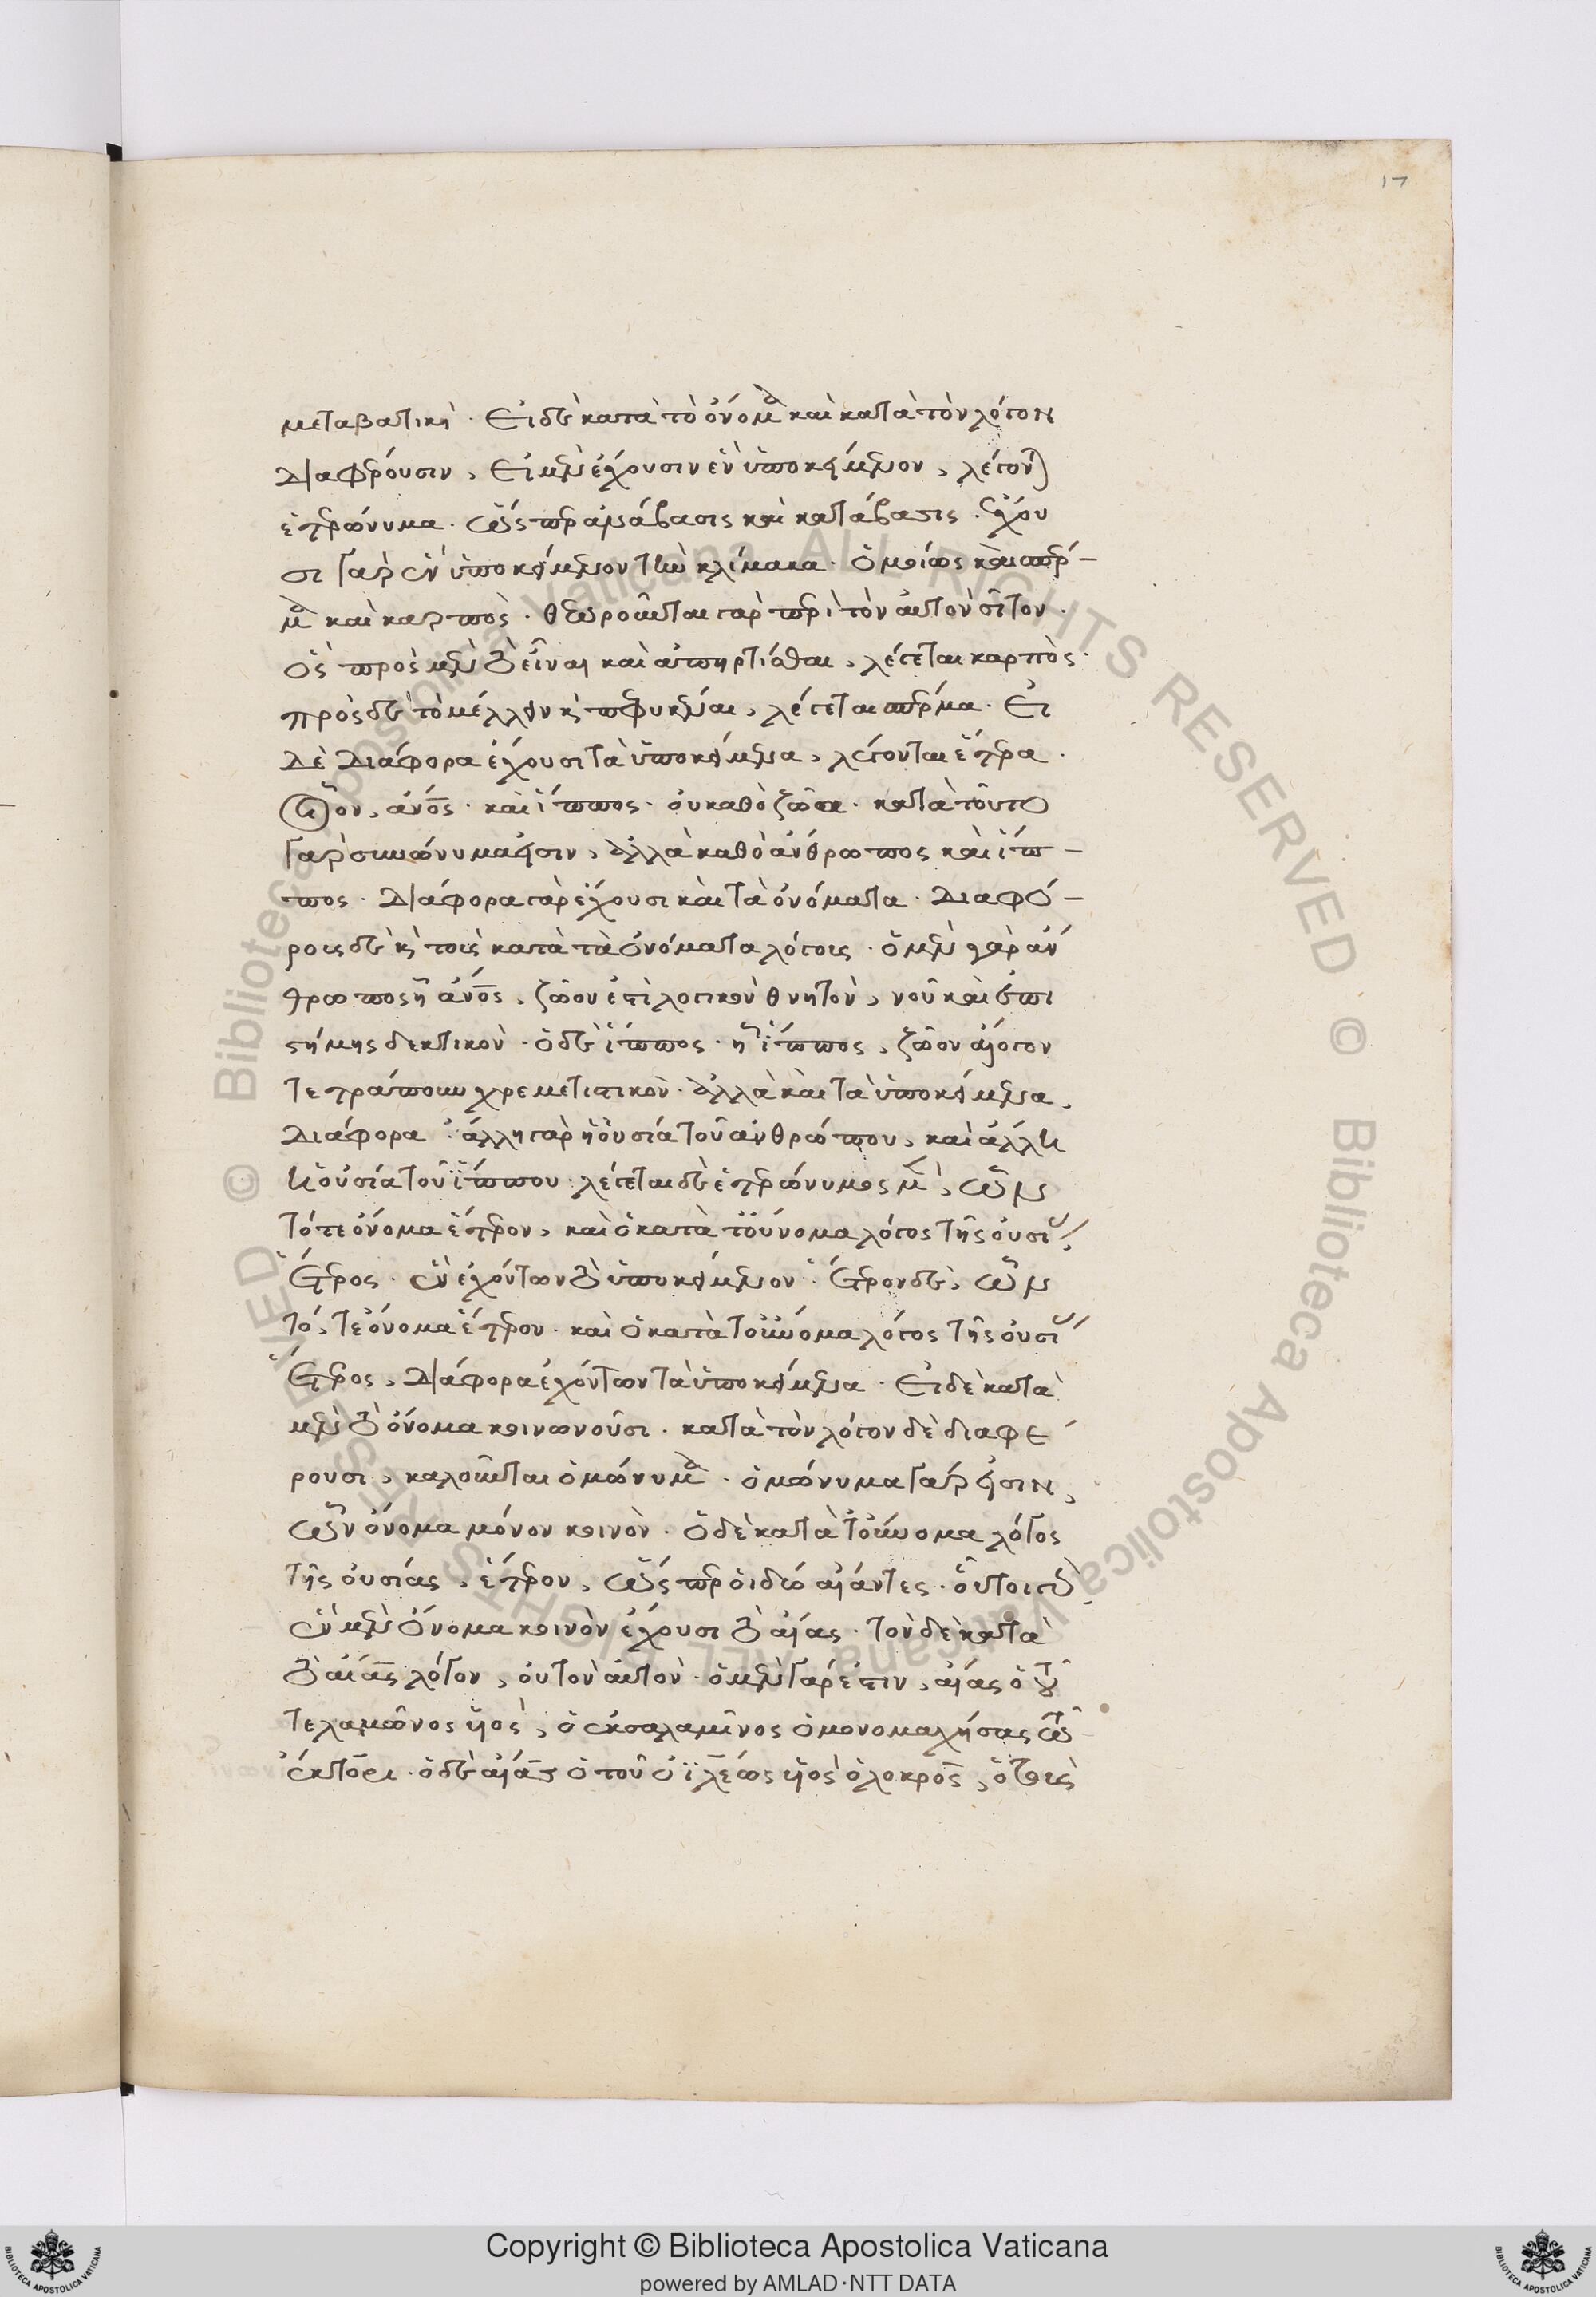 17
μεταβατικὴ. Εἰ δὲ κατὰ τὸ ὄνομα καὶ κατὰ τὸν λόγον
διαφέρουσιν, εἰ μὲν ἔχουσιν ἓν ὑποκείμενον, λέγονται
ἑτερώνυμα. ὥσπερ ἀνάβασις καὶ κατάβασις. ἔχου
σι γὰρ ἓν ὑποκείμενον τὴν κλίμακα. ὁμοίως καὶ σπέρ-
μα καὶ καρπὸς. θεωροῦνται γὰρ περὶ τὸν αὐτὸν σῖτον.
ὃς πρὸς μὲν τὸ εἶναι καὶ ἀπηρτίσθαι, λέγεται καρπὸς.
πρὸς δὲ τὸ μέλλειν καὶ πεφυκέναι, λέγεται σπέρμα. Εἰ
δὲ διάφορα ἔχουσι τὰ ὑποκείμενα, λέγονται ἕτερα.
οἷον, ἄνος. καὶ ἵππος. οὐ καθὸ ζῶα. κατὰ τοῦτο
γὰρ συνώνυμα εἰσιν, ἀλλὰ καθὸ ἄνθρωπος καὶ ἵπ-
πος. διάφορα γὰρ ἔχουσι καὶ τὰ ὀνόματα. διαφό-
ροις δὲ καὶ τοῖς κατὰ τὰ ὀνόματα λόγοις. ὁ μὲν γὰρ ἄν
θρωπος ἢ ἄνος, ζῶον ἐστὶ λογικὸν θνητὸν, νοῦ καὶ ἐπι
στήμης δεκτικὸν. ὁ δὲ ἵππος. ἢ ἵππος, ζῶον ἄλογον
τετράπουν χρεμετιστικὸν. ἀλλὰ καὶ τὰ ὑποκείμενα,
διάφορα. ἄλλη γὰρ ἡ οὐσία τοῦ ἀνθρώπου, καὶ ἄλλη
ἡ οὐσία τοῦ ἵππου. λέγεται δὲ ἑτερώνυμος μὲν, ὧν
τό τε ὄνομα ἕτερον, καὶ ὁ κατὰ τοὔνομα λόγος τῆς οὐσίας
ἕτερος. ἓν ἐχόντων τὸ ὑποκείμενον. ἕτερον δὲ, ὧν
τό, τε ὄνομα ἕτερον. καὶ ὁ κατὰ τοὔνομα λόγος τῆς οὐσίας
ἕτερος, διάφορα ἐχόντων τὰ ὑποκείμενα. Εἰ δὲ κατὰ
μὲν τὸ ὄνομα κοινωνοῦσι. κατὰ τὸν λόγον δὲ διαφέ
ρουσι, καλοῦνται ὁμώνυμα. ὁμώνυμα γὰρ εἰσιν,
ὧν ὄνομα μόνον κοινὸν. ὁ δὲ κατὰ τοὔνομα λόγος
τῆς οὐσίας, ἕτερον, ὥσπερ οἱ δύο αἴαντες. οὗτοι γὰρ
ἓν μὲν ὄνομα κοινὸν ἔχουσι τὸ αἴας. τὸν δὲ κατὰ
τὸ αἴας λόγον, οὐ τὸν αὐτὸν. ὁ μὲν γὰρ ἐστιν, αἴας ὁ τοῦ
τελαμῶνος υἱὸς, ὁ ἐκ σαλαμῖνος ὁ μονομαχήσας τῷ
ἕκτορι. ὁ δὲ αἴας ὁ τοῦ ὀϊλέως υἱὸς ὁ λοκρὸς, ὅστις